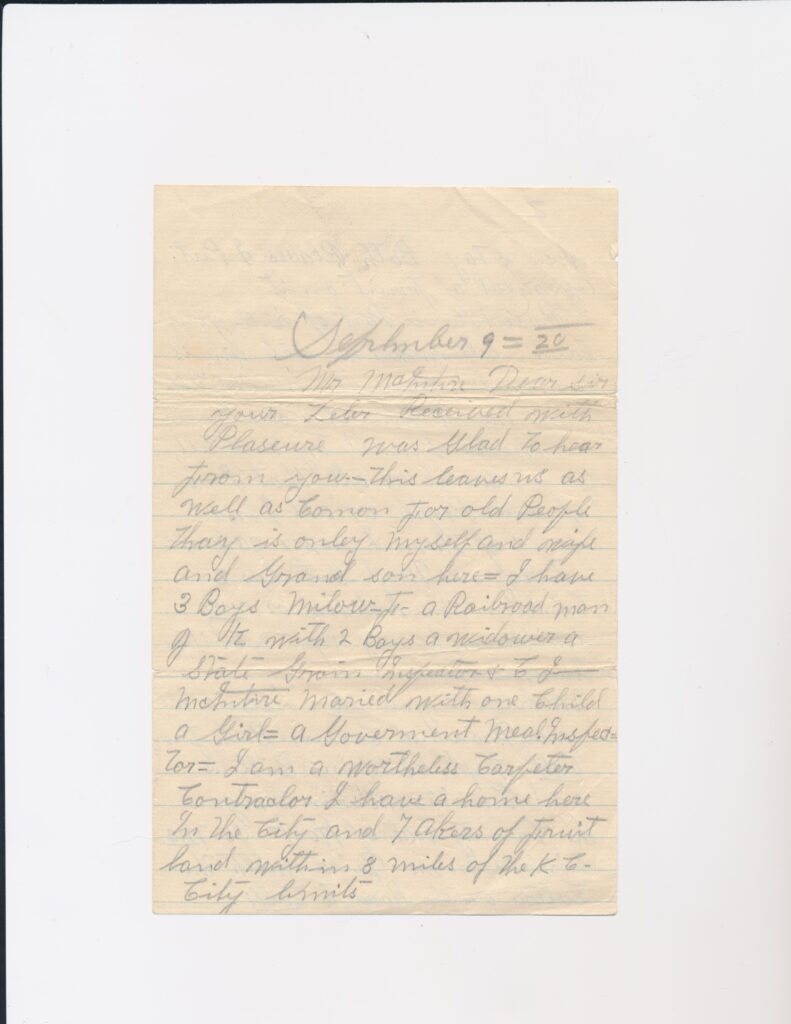 September 9 = 20
Mr McIntire Dear sir
your Leter Received with
Plaseure was Glad to hear
From you—this leaves us as
well as Comon For old People
Thay is onley myself and wife
and Grand son here = I have
3 Boys a Railroad man
with 2 Boys a widower a
State Grain Inspector & C J
McIntire Maried with one Child
a Girl = a Goverment Meat Inspec=
Tor = I am a wortheless Carpeter
Contractor I have a home here
In The City and 7 Akers of Fruit
land within 8 miles of the K C-
City limits